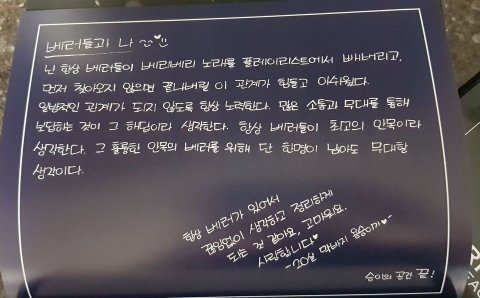 베러들과 나
난 항상 베러들이 베리베리 노래를 플레이리스트에서 빼버리고,
먼저 찾아오지 않으면 끝나버릴 이 관계가 힘들고 아쉬웠다.
일방적인 관계가 되지 않도록 항상 노력한다. 많은 소통과 무대를 통해
보답하는 것이 그 해답이라 생각한다. 항상 베러들이 최고의 안목이라
생각한다. 그 훌륭한 안목의 베러를 위해 단 한명이 남아도 무대할
생각이다.
항상 베러가 있어서
끊임없이 생각하고 정리하게
되는 것 같아요, 고마워요.
사랑합니다♥
-20살 막바지
승이의 공간 끝!